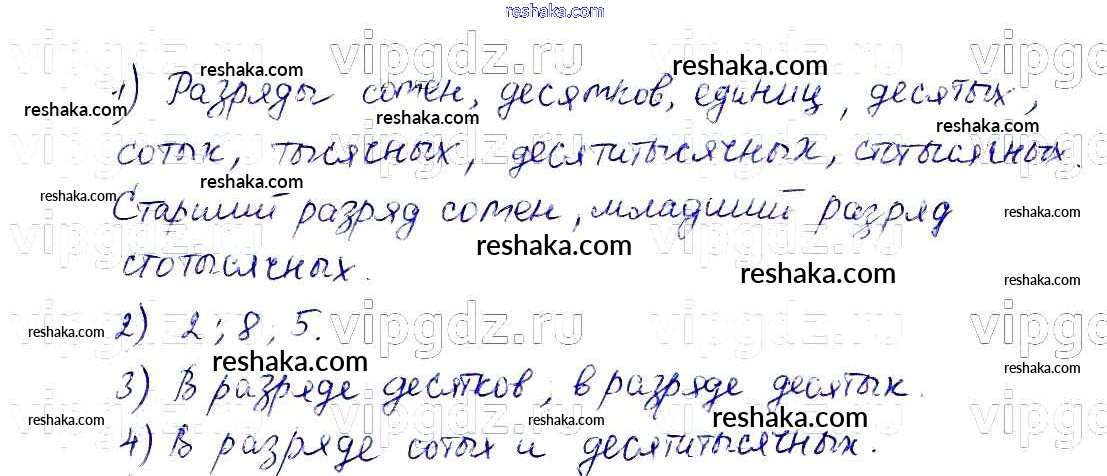 reshaka.com
1) Разряды сотен, десятков, единиц, десятых,
сотых, тысячных, десятитысячных, стотысячных.
Старший разряд сотен, младший разряд
стотысячных.
2) 2; 8; 5.
3) В разряде десятков, в разряде десятых.
4) В разряде сотых и десятитысячных.
vipgdz.ru
reshaka.com